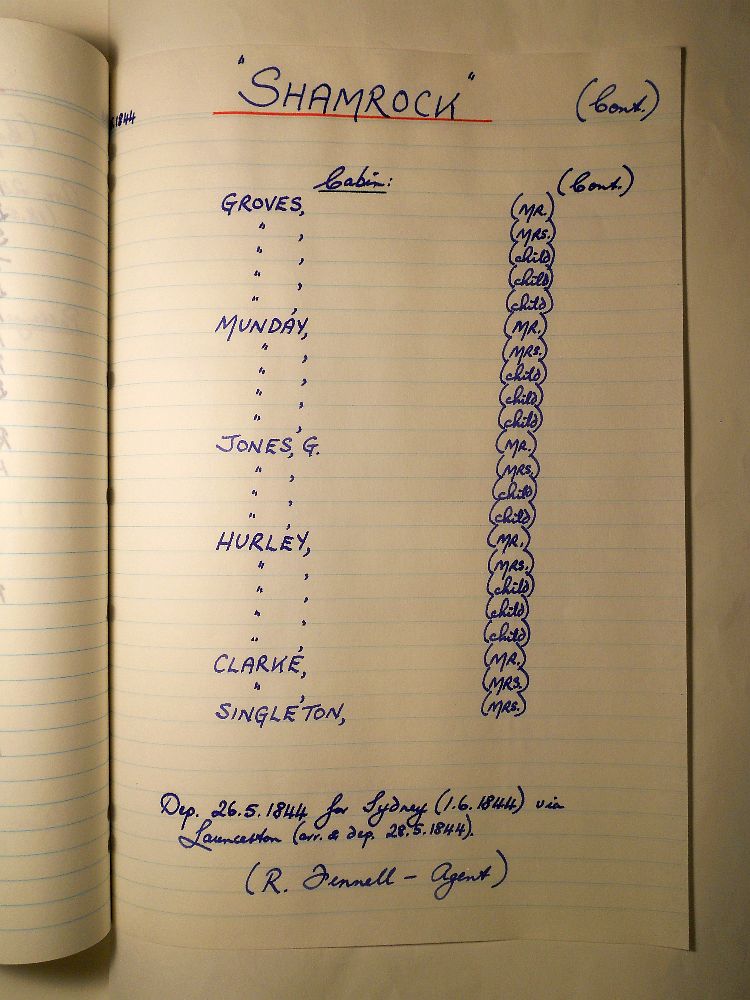 "SHAMROCK" (Cont.)
1844
Cabin: (Cont.)
GROVES, (MR.)
" , (MRS.)
" , (child)
" , (child)
" , (child)
MUNDAY, (MR.)
" , (MRS.)
" , (child)
" , (child)
" , (child)
JONES, G. (MR.)
" , (MRS.)
" , (child)
" , (child)
HURLEY, (MR.)
" , (MRS.)
" , (child)
" , (child)
" , (child)
CLARKE, (MR.)
" , (MRS.)
SINGLETON, (MRS.)
Dep. 26.5.1844 for Sydney (1.6.1844) via
Launceston (arr. & dep. 28.5.1844).
(R. Fennell - Agent)